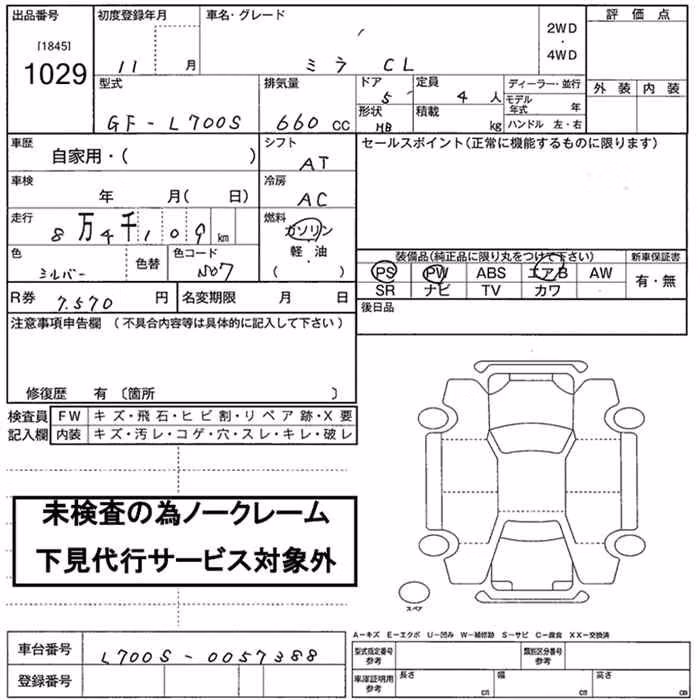 出品番号 初度登録年月 車名・グレード 2WD・4WD 評価点
[1845]
1029 11 月 ミラ CL
外装 内装
型式 排気量 ドア 定員 ディーラー・並行
GF-L700S 660 CC 5 4 人 モデル年式 年
形状 積載
HB kg ハンドル 左・右
車歴 シフト セールスポイント(正常に機能するものに限ります)
自家用・( ) AT
車検 冷房
年 月( 日) AC
走行 燃料
8万4千109 km ガソリン
軽・油
・
( )
色 色替 色コード
シルバー N07
装備品(純正品に限り丸をつけて下さい) 新車保証書
PS PW ABS エアB AW 有・無
SR ナビ TV カワ
R券 7.570 円 名変期限 月 日
後日品
注意事項申告欄 (不具合内容等は具体的に記入して下さい)
修復歴 有 〔箇所 〕
検査員 FW キズ・飛石・ヒビ割・リペア跡・X要
記入欄 内装 キズ・汚レ・コゲ・穴・スレ・キレ・破レ
未検査の為ノークレーム
下見代行サービス対象外
スペア
A−キズ E−エクボ U−凹み W−補修跡 S−サビ C−腐食 XX−交換済
車台番号 L700S-0057388
型式指定番号 参考 類別区分番号 参考
登録番号
車庫証明用 参考 長さ cm 幅 cm 高さ cm